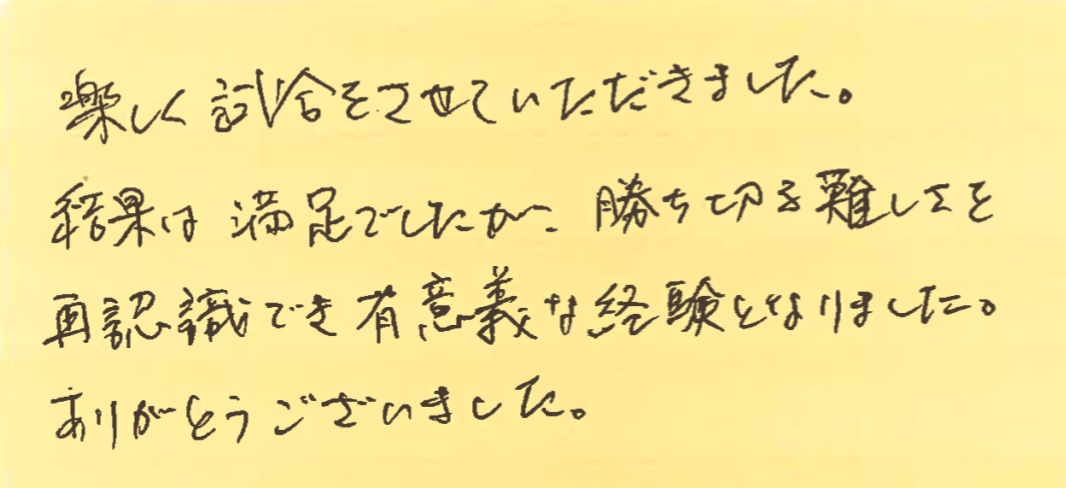 楽しく試合をさせていただきました。
結果は満足でしたが、勝ち切る難しさを
再認識でき有意義な経験となりました。
ありがとうございました。